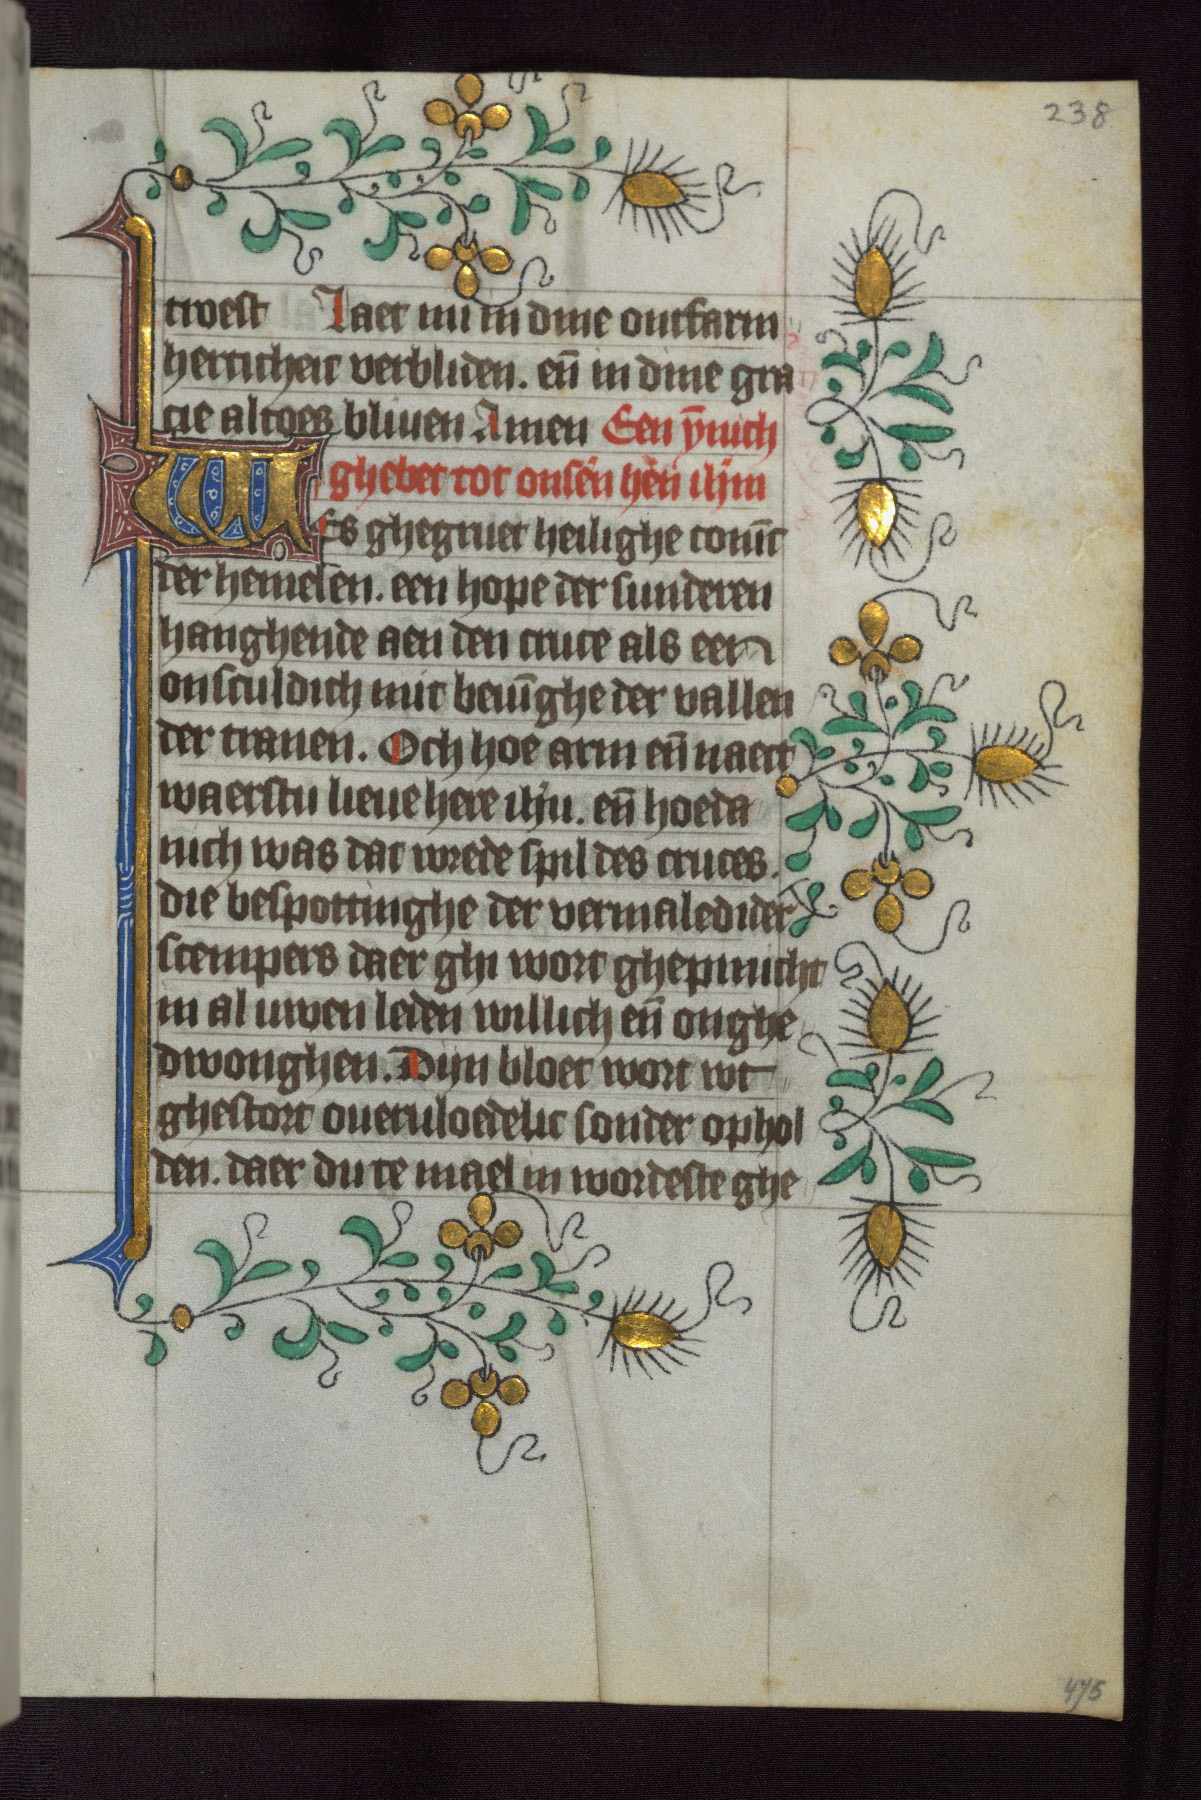 238
troest Laet mi in dine ontfarm
herticheit verbliden. en̄ in dine gra
cie altoes bliuen Amen Een ȳnich
ghebet tot onsēn hēn ihm̄
WEs ghegruet heilighe coninc
der hemelen. een hope der sunderen
hanghende aen den cruce als een
onsculdich mit beuīghe der vallen
der tranen. Och hoe arm en̄ naect
waerstu lieue here ihū. en̄ hoeda
nich was dat wrede spil des cruces.
die bespottinghe der vermaledider
scempers daer ghi wort ghepinicht
in al uwen leden willich en̄ onghe
dwonghen. Dijn bloet wort wt
ghestort oueruloedelic sonder ophol
den. daer du te mael in wordeste ghe
475